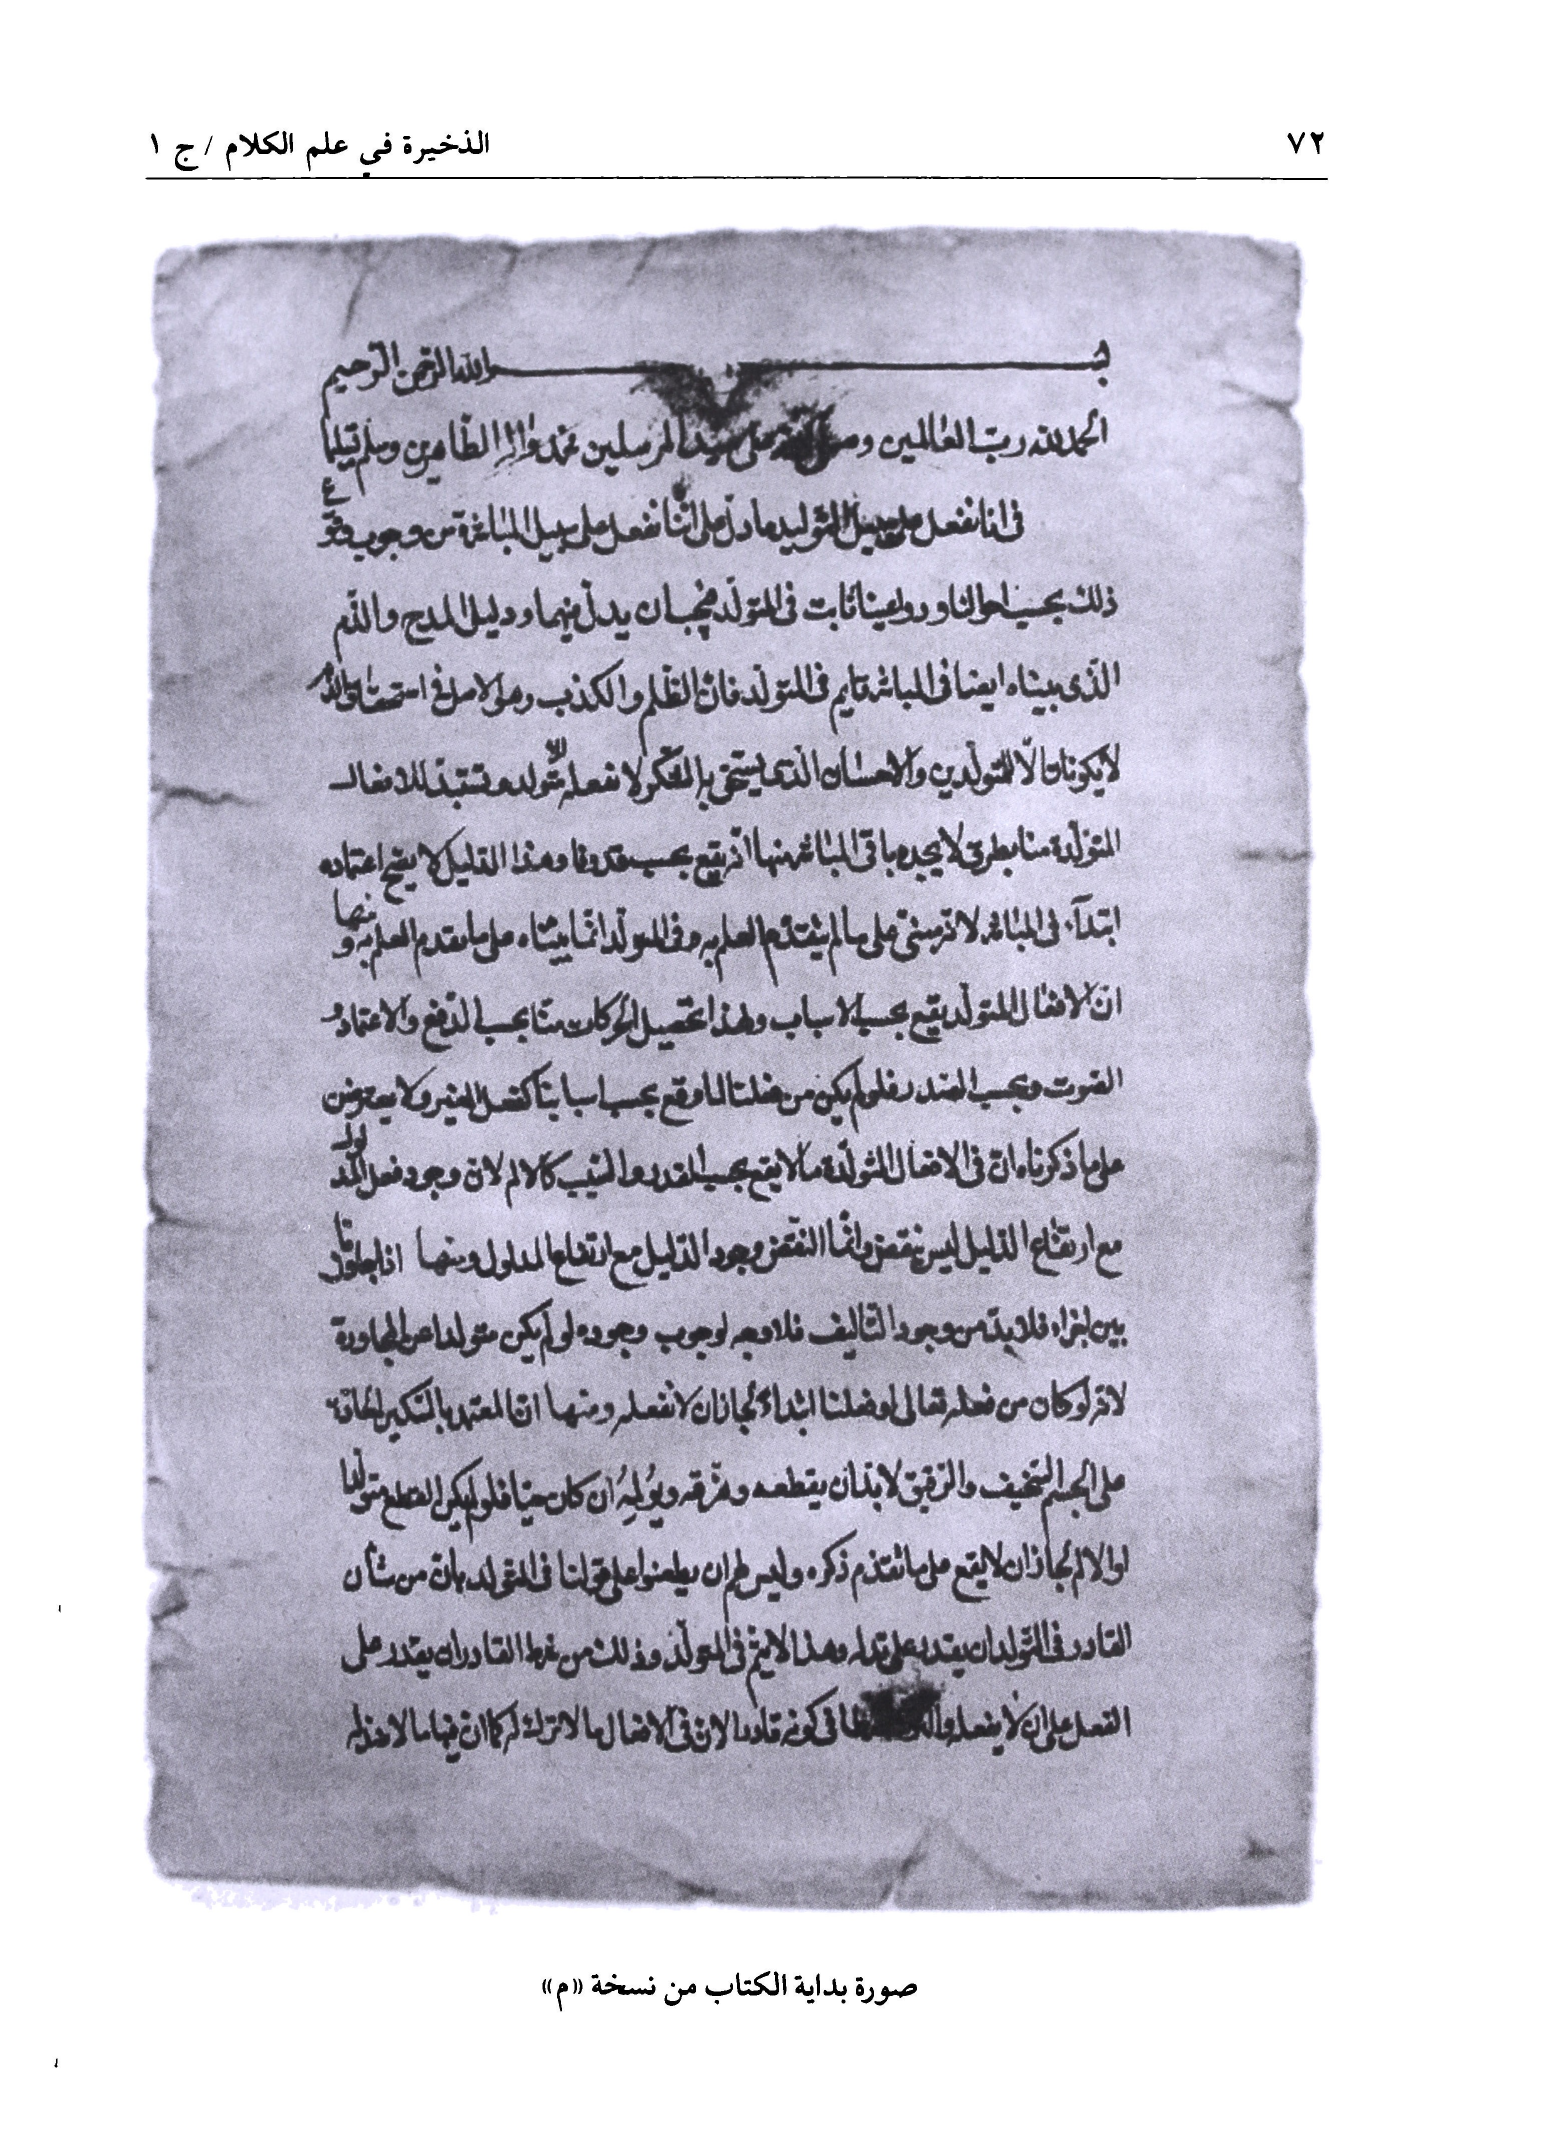 ٧٢
الذخيرة في علم الكلام / ج ١
بسم الله الرحمن الرحيم
الحمد لله رب العالمين وصلى الله على سيد المرسلين محمد وآله الطاهرين وسلم
في انا نفعل على سبيل التوليد ما دل على أننا نفعل على سبيل المباشرة من وجوب وقوع
ذلك بحسب احوالنا ودواعينا ثابت في المتولد فيجب ان يدل فيهما ودليل المدح والذم
الذى بيناه ايضا في المباشر قايم في المتولد فان الظلم والكذب وهو الاصل في استحقاق الذم
لا يكونان الا متولدين والاحسان الذى يستحق به الشكر لا نفعله الا متولدا للافعال
المتولدة منا بطرق لا يجده باقى المباشر منها انه يقع بحسب قدرنا وهذا الدليل لا يصح اعتماده
ابتدآء في المباشر لانه مبنى على ما لم يتقدم العلم به وفى المتولد انما بيناه على ما تقدم العلم به ومنها
ان الافعال المتولد يقع بحسب الاسباب ولهذا تحصيل الحركات منا بحسب الدفع والاعتماد و
الصوت وبحسب المصدر فلو لم يكن من فعلنا لما وقع بحسب اسبابنا كفعل الغير ولا يعترض
على ما ذكرناه ان في الافعال المتولدة ما لا يقع بحسب القدر والسبب كالالم لان وجود فعل المتولد
مع ارتفاع الدليل ليس بنقض وانما النقض وجود الدليل مع ارتفاع المدلول ومنها اذا جاورنا
بين اجزاء فلا بد من وجود التأليف فلا وجه لوجوب وجوده لو لم يكن متولدا عن المجاورة
لانه لو كان من فعله تعالى او فعلنا ابتداء لجاز ان لا نفعله ومنها ان المعتمد بالسكين الحادة
على الجسم السخيف والرقيق لا بد ان يقطعه ويفرقه ويؤلمه ان كان حيا فلو لم يكن القطع متولدا
او الالم لجاز ان لا يقع على ما تقدم ذكره وليس لهم ان يطعنوا على قولنا في المتولد بان من شأن
القادر في المتولد ان يقدر على تركه وهذا لا يتم في المتولد وذلك من شرط القادر ان يقدر على
الفعل على ان لا يفعله في كونه قادرا لان في الافعال ما لا ترك له كما ان فيها ما لا ضد له
صورة بداية الكتاب من نسخة «م»